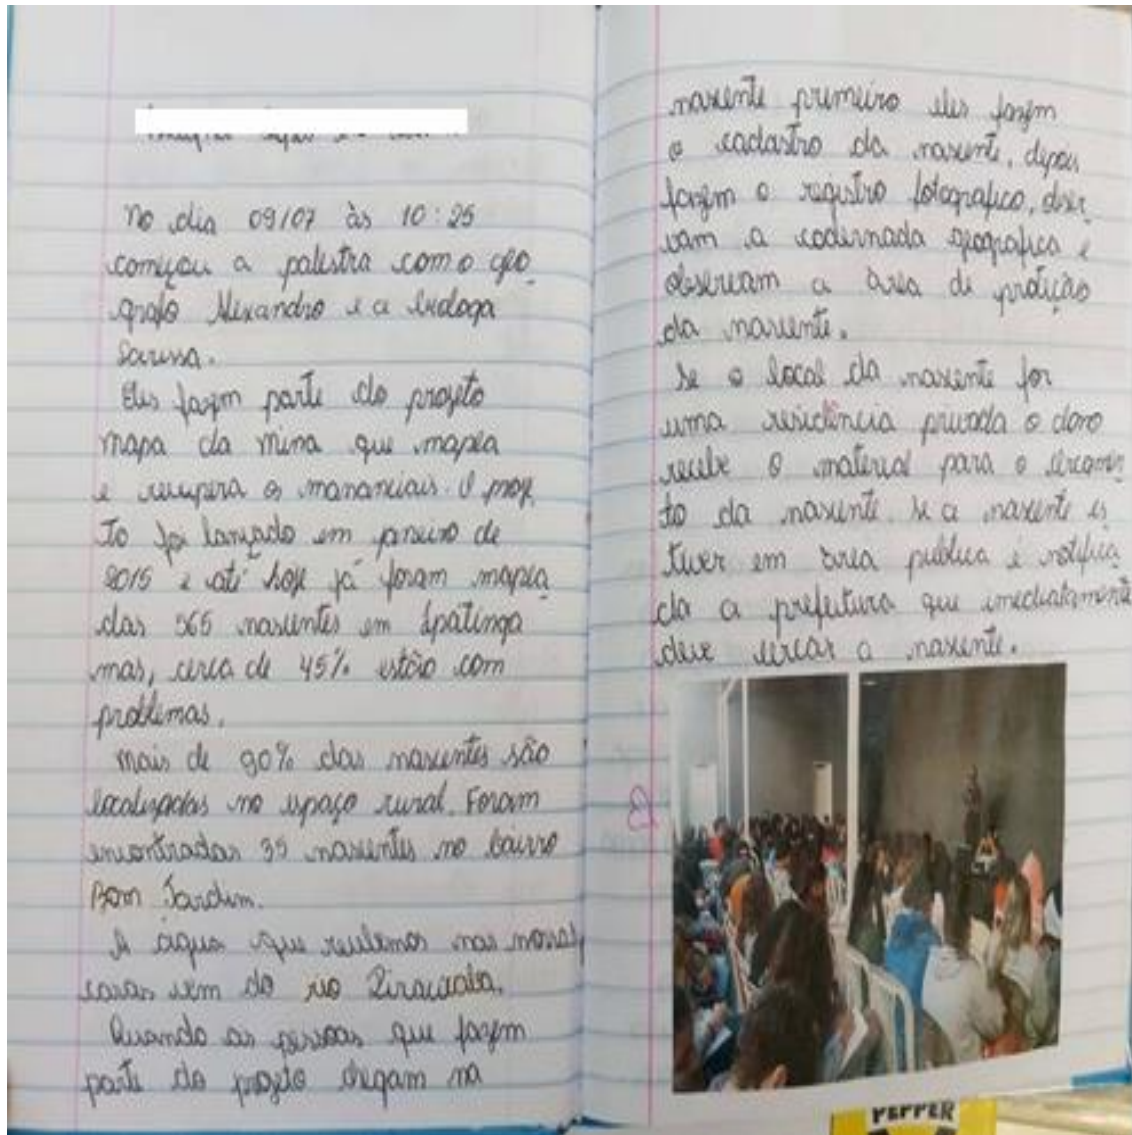 No dia 09/07 às 10:25
começou a palestra com o geo
grafo Alexandro e a biologa
Larissa.
Eles fazem parte do projeto
mapa da mina que mapea
e recupera os mananciais. O proje
to foi lançado em janeiro de
2015 e até hoje já foram mapea
das 565 nascentes em Ipatinga
mas, cerca de 45% estão com
problemas.
Mais de 90% das nascentes são
localizadas no espaço rural. Foram
encontradas 35 nascentes no bairro
Bom Jardim.
A água que recebemos nas nossas
casas vem do rio Piracicaba.
Quando as pessoas que fazem
parte do projeto chegam na
nascente primeiro eles fazem
o cadastro da nascente, depois
fazem o registro fotografico, obser
vam a codernada geografica e
observam a área de proteção
da nascente.
Se o local da nascente for
uma residência privada o dono
recebe o material para o cercamen
to da nascente. Se a nascente es
tiver em área publica é notifica
da a prefeitura que imediatamente
deve cercar a nascente.
PEPPER